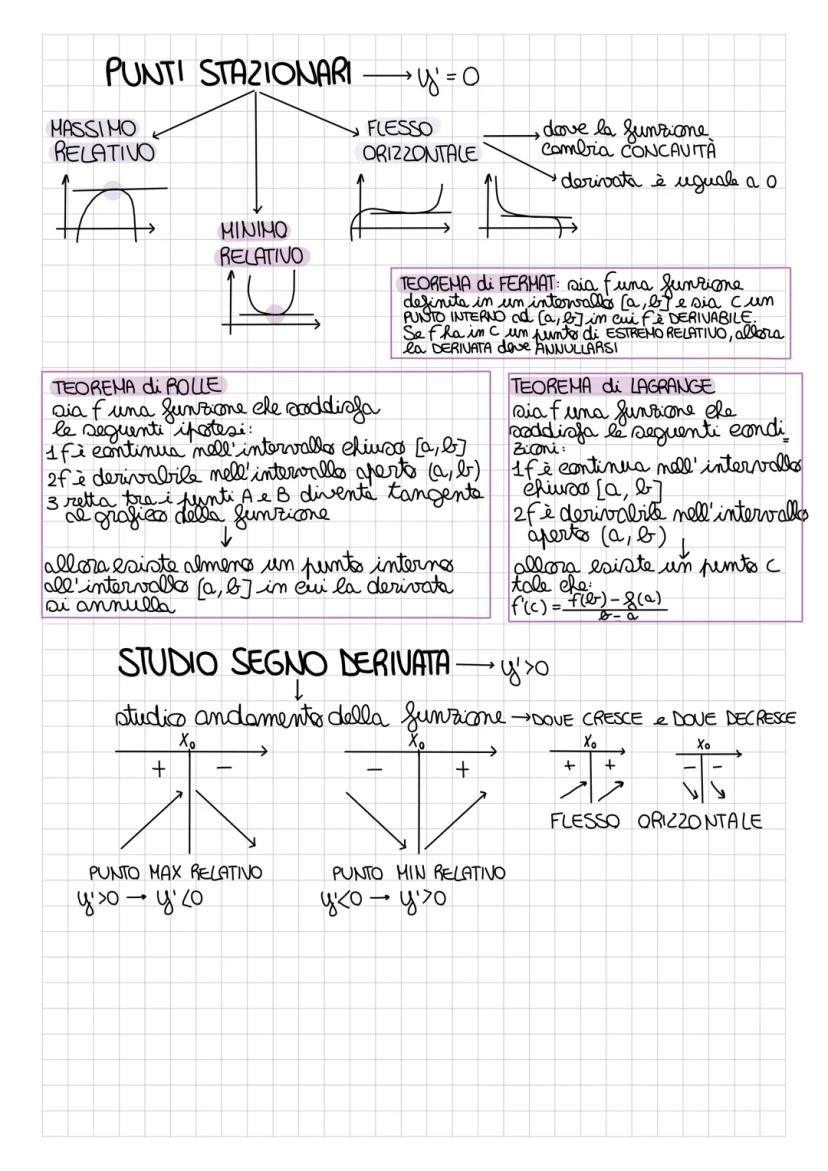 PUNTI STAZIONARI → y' = 0
MASSIMO
RELATIVO
FLESSO
ORIZZONTALE
dove la funzione
cambia CONCAVITÀ
derivata è uguale a 0
MINIMO
RELATIVO
TEOREMA di FERMAT: sia f una funzione
definita in un intervallo [a,b] e sia c un
PUNTO INTERNO ad [a,b] in cui f è DERIVABILE.
Se f ha in c un punto di ESTREMO RELATIVO, allora
la DERIVATA deve ANNULLARSI
TEOREMA di ROLLE
sia f una funzione che soddisfa
le seguenti ipotesi:
1 f è continua nell'intervallo chiuso [a,b]
2 f è derivabile nell'intervallo aperto (a,b)
3 retta tra i punti A e B diventa tangente
al grafico della funzione
↓
allora esiste almeno un punto interno
all'intervallo [a,b] in cui la derivata
si annulla
TEOREMA di LAGRANGE
sia f una funzione che
soddisfa le seguenti condi_
zioni:
1 f è continua nell'intervallo
chiuso [a,b]
2 f è derivabile nell'intervallo
aperto (a,b) ↓
allora esiste un punto c
tale che:
f'(c) = f(b) - f(a) / b - a
STUDIO SEGNO DERIVATA → y'>0
↓
studio andamento della funzione → DOVE CRESCE e DOVE DECRESCE
x₀
+ -
PUNTO MAX RELATIVO
y'>0 → y'<0
x₀
- +
PUNTO MIN RELATIVO
y'<0 → y'>0
x₀
+ +
x₀
- -
FLESSO ORIZZONTALE